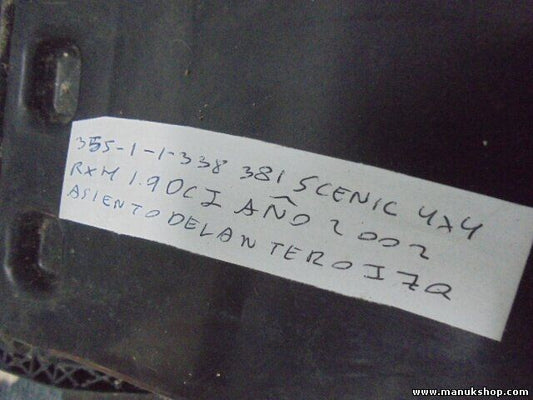 355-1-1-338 381 SCENIC 4X4
RXH 1.9 DCI AÑO 2002
ASIENTO DELANTERO IZQ
www.manukshop.com